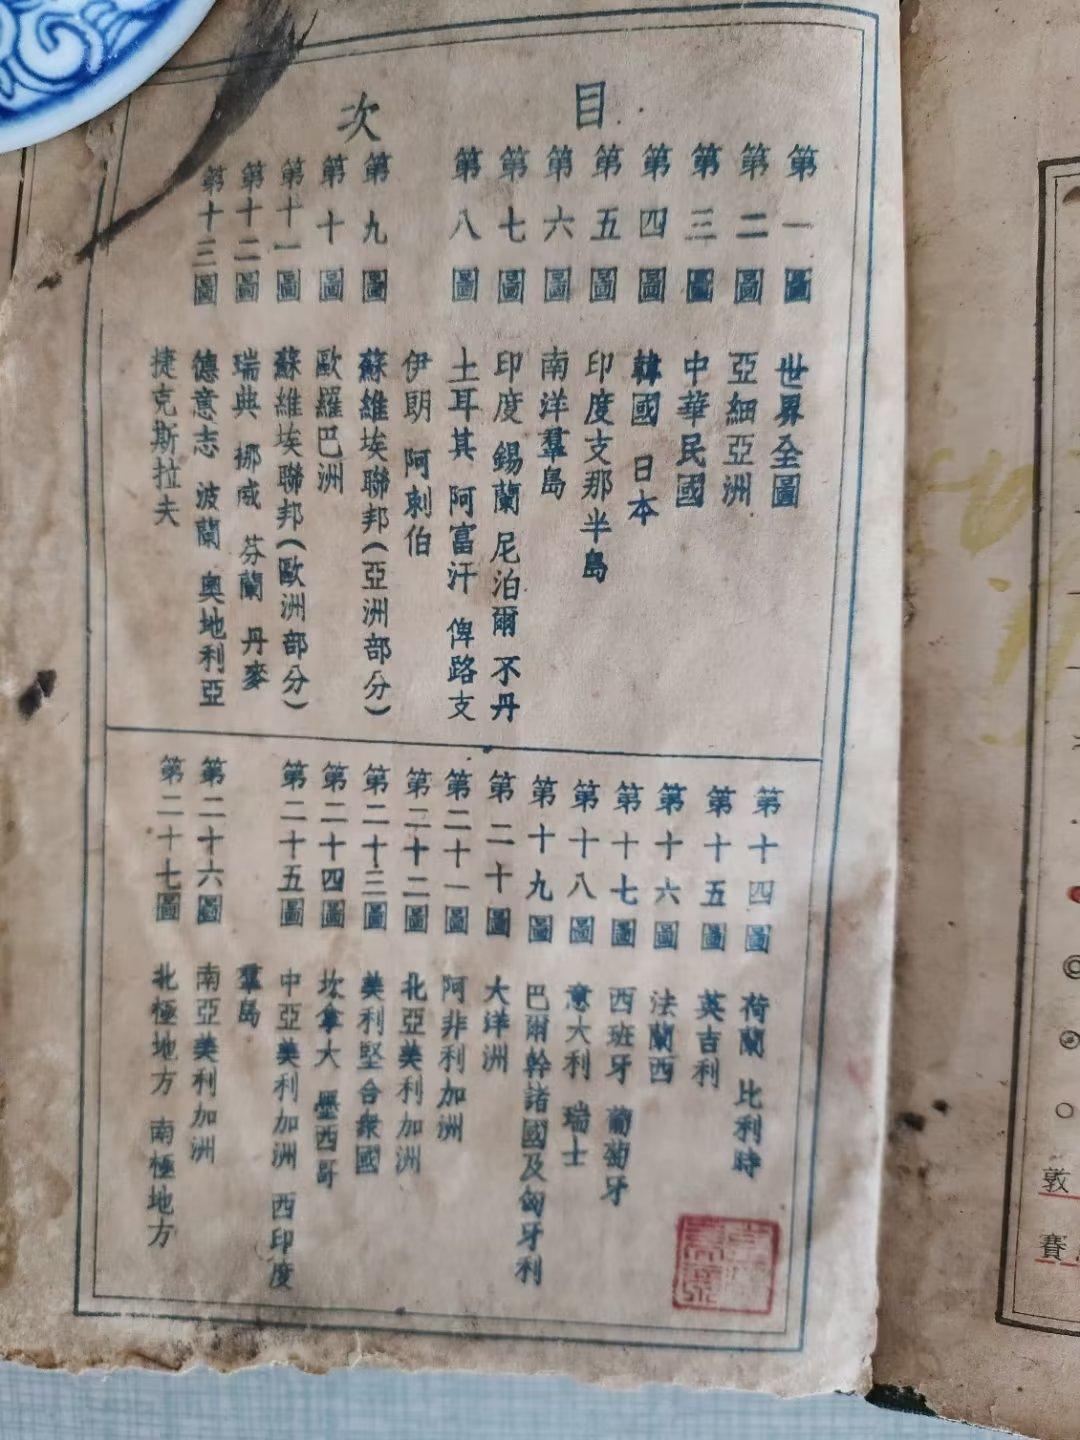 目次
第一圖 世界全圖
第二圖 亞細亞洲
第三圖 中華民國
第四圖 韓國 日本
第五圖 印度支那半島
第六圖 南洋羣島
第七圖 印度 錫蘭 尼泊爾 不丹
第八圖 土耳其 阿富汗 俾路支
伊朗 阿剌伯
第九圖 蘇維埃聯邦(亞洲部分)
第十圖 歐羅巴洲
第十一圖 蘇維埃聯邦(歐洲部分)
第十二圖 瑞典 挪威 芬蘭 丹麥
第十三圖 德意志 波蘭 奧地利亞
捷克斯拉夫
第十四圖 荷蘭 比利時
第十五圖 英吉利
第十六圖 法蘭西
第十七圖 西班牙 葡萄牙
第十八圖 意大利 瑞士
第十九圖 巴爾幹諸國及匈牙利
第二十圖 大洋洲
第二十一圖 阿非利加洲
第二十二圖 北亞美利加洲
第二十三圖 美利堅合衆國
第二十四圖 坎拿大 墨西哥
第二十五圖 中亞美利加洲 西印度
羣島
第二十六圖 南亞美利加洲
第二十七圖 北極地方 南極地方
敦
賽